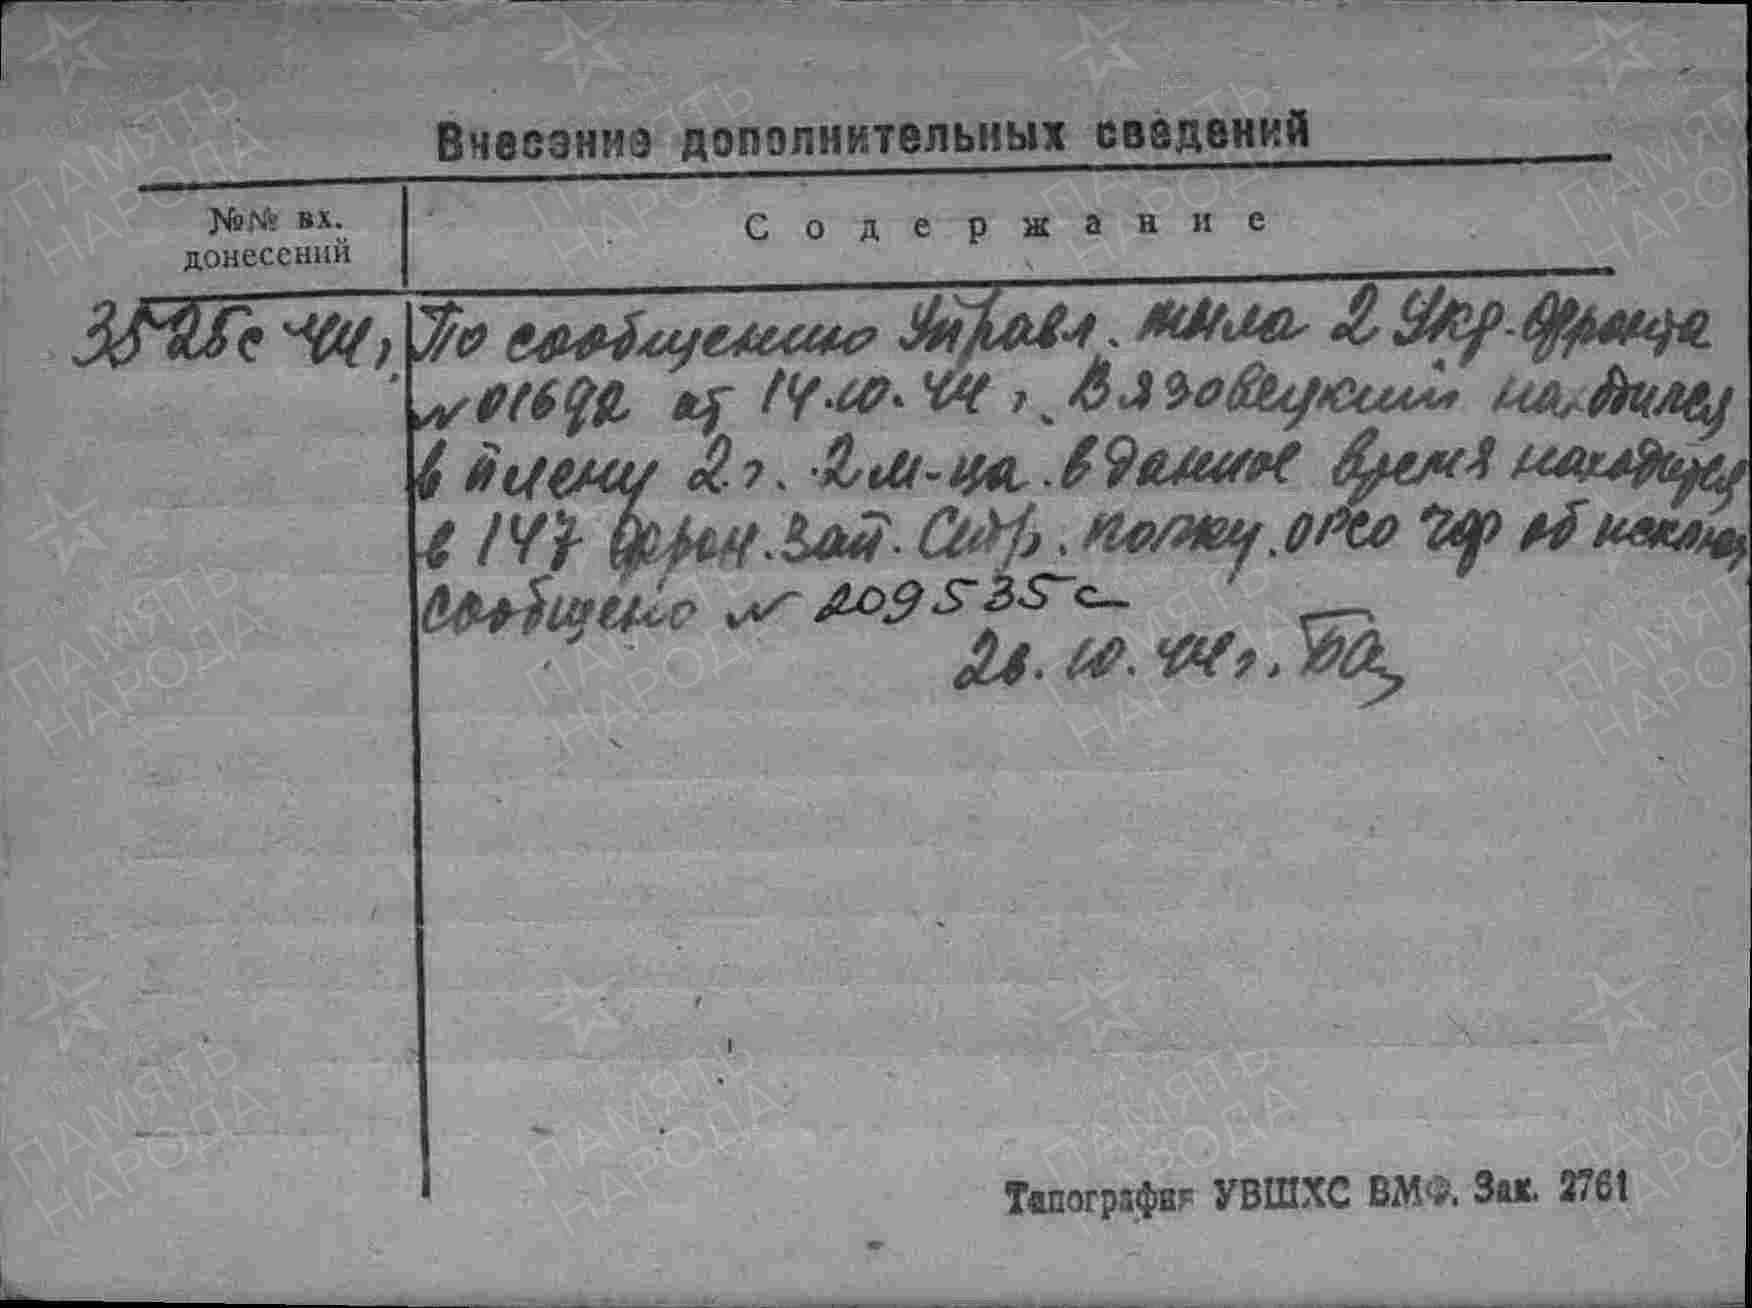 Внесение дополнительных сведений
№№ вх.
донесений
Содержание
3525с 44г.
По сообщению Управл. тыла 2 Укр. фронта
№ 01692 от 14.10.44 г. Вязовецкий находился
в плену 2 г. 2 м-ца. в данное время находится
в 147 фрон. зап. Стр. полку. ОРСО ЧФ об исключ.
сообщено № 209535с
10.44г.
Типография УВШХС ВМФ. Зак. 2761
ПАМЯТЬ
НАРОДА